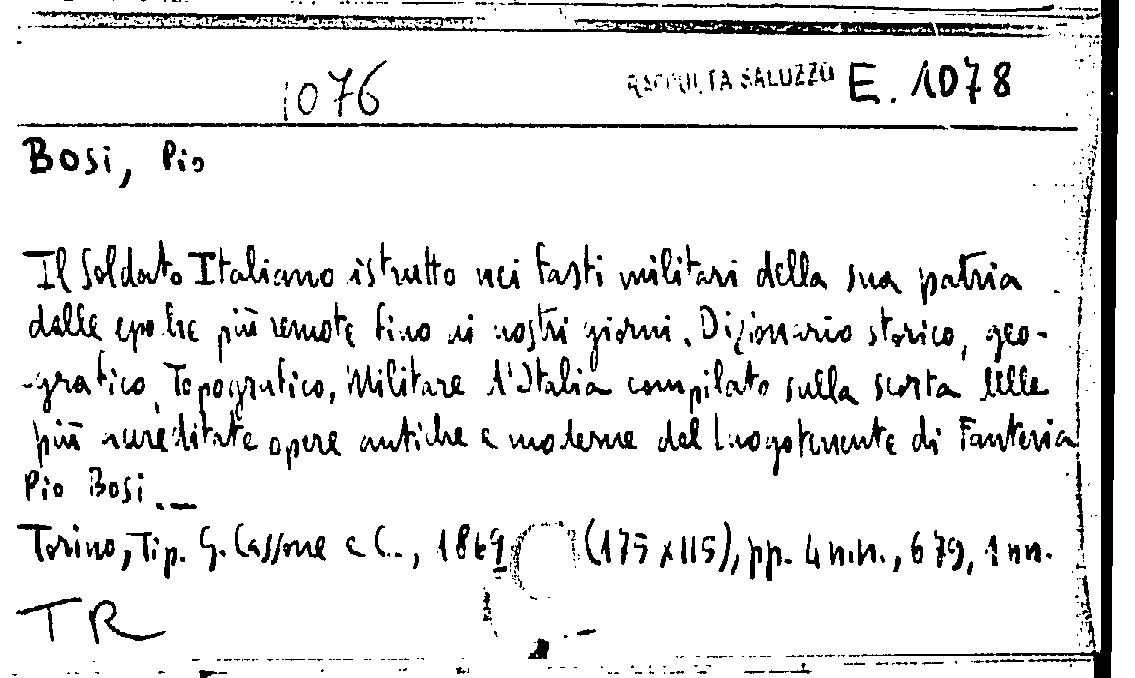 1076 RACCOLTA SALUZZO E. 1078
Bosi, Pio
Il Soldato Italiano istrutto nei fasti militari della sua patria
dalle epoche più remote fino ai nostri giorni. Dizionario storico, geo-
-grafico, Topografico, Militare d'Italia compilato sulla scorta delle
più accreditate opere antiche e moderne del Luogotenente di Fanteria
Pio Bosi._
Torino, Tip. G. Cassone e C.., 1869 (175x115), pp. 4 n.n., 679, 1 nn.
TR